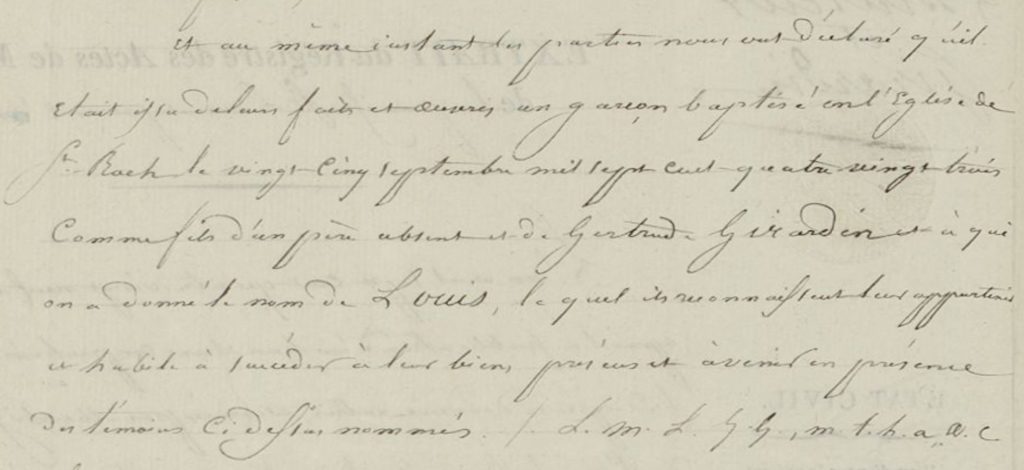 Et au même instant les parties nous ont déclaré qu'il
etait issu de leurs faits et œuvres un garçon baptisé en l'Eglise de
St. Roch le vingt cinq septembre mil sept cent quatre vingt trois
Comme fils d'un père absent et de Gertrude Girardin et à qui
on a donné le nom de Louis, le quel ils reconnaissent leur appartenir
et habile à succéder à leur biens présens et à venir en présence
des témoins Ci dessus nommés. /. L. M. L. G. G., m. t. h. a. a. c